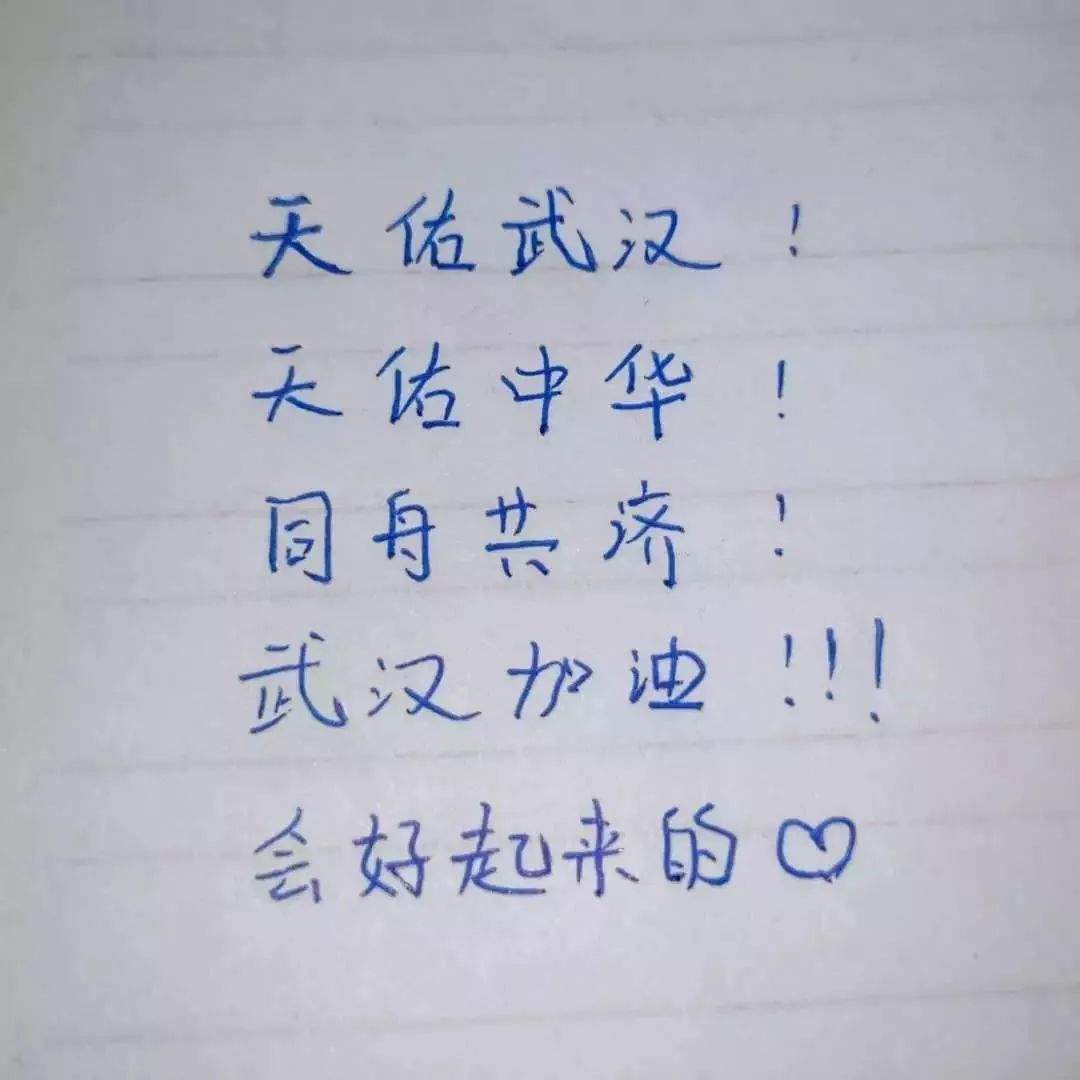 天佑武汉！
天佑中华！
同舟共济！
武汉加油！！！
会好起来的♡